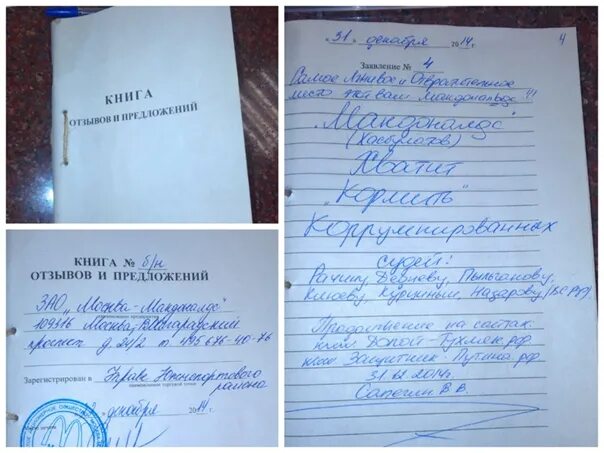 КНИГА
ОТЗЫВОВ И ПРЕДЛОЖЕНИЙ
КНИГА № б/н
ОТЗЫВОВ И ПРЕДЛОЖЕНИЙ
ЗАО „Москва-Макдоналдс"
109316 Москва, Волгоградский
проспект д 24/2 т 495 676-40-76
Зарегистрирован в Управе Южнопортового
района
декабря 2014 г.
4
„31" декабря 2014 г.
Заявление № 4
Самое лживое и отвратительное
место этот ваш Макдональдс!!!
„Макдоналдс"
(Хасбулатов)
Хватит
"Кормить"
Коррумпированных
судей:
Рачину, Пыльганову,
Клюеву, Куркиным, Назарову (ВС РФ).
Продолжение на сайтах:
Долой-Тухмяк.рф
Защитник-Путина.рф
31.12.2014г
Сапегин В.В.